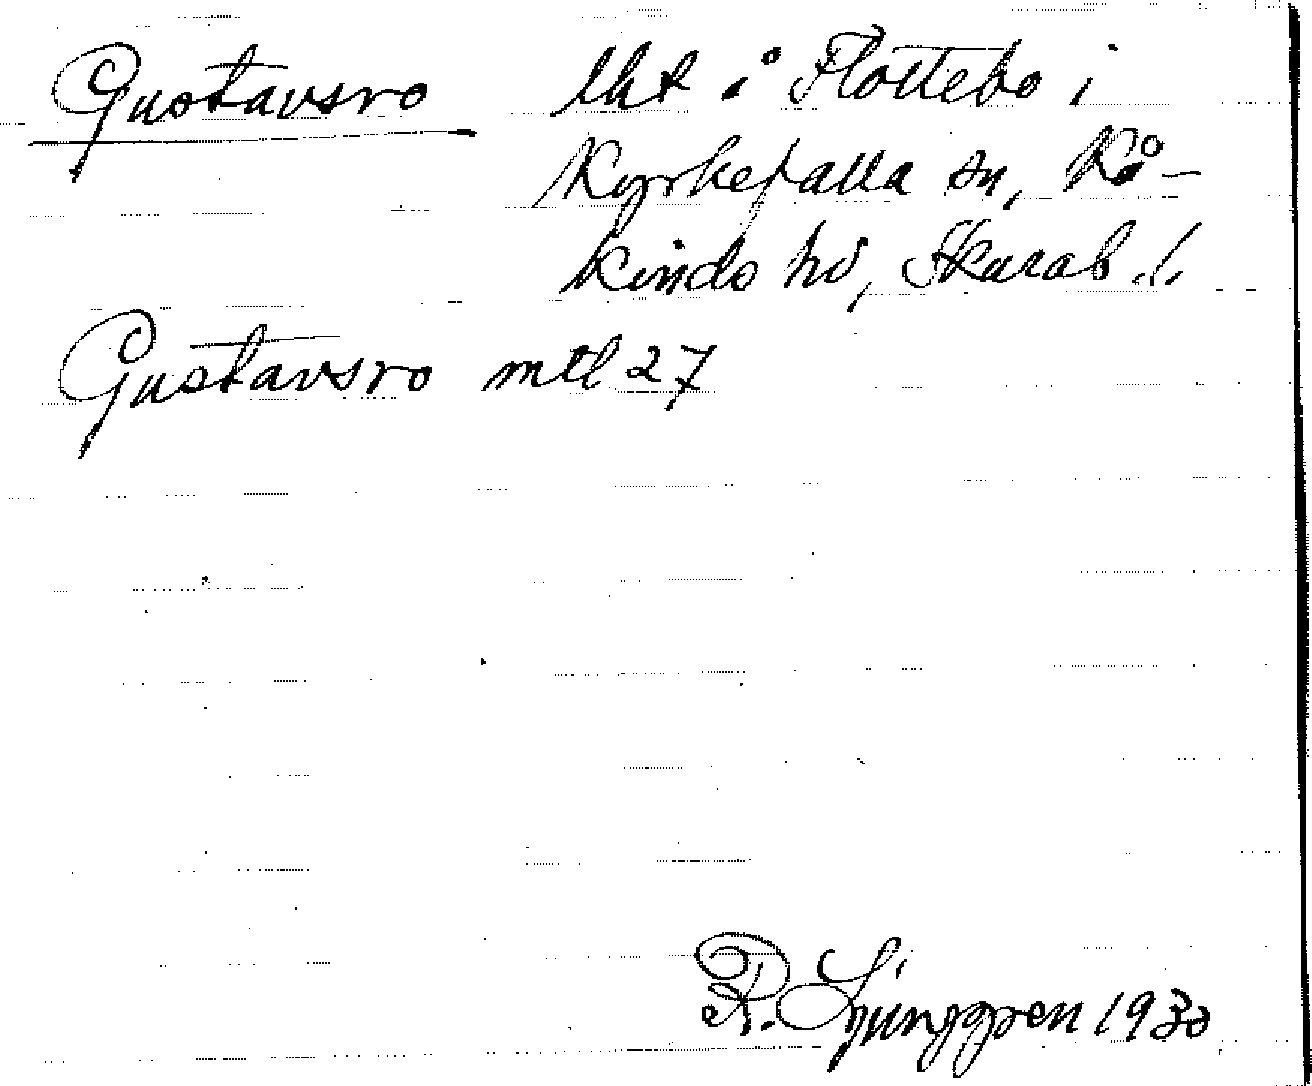 Gustavsro lht i Flottebo i
Kyrkefalla sn, Kå-
kinds hd, Skarab. l.
Gustavsro mtl 27
R. Ljunggren 1930